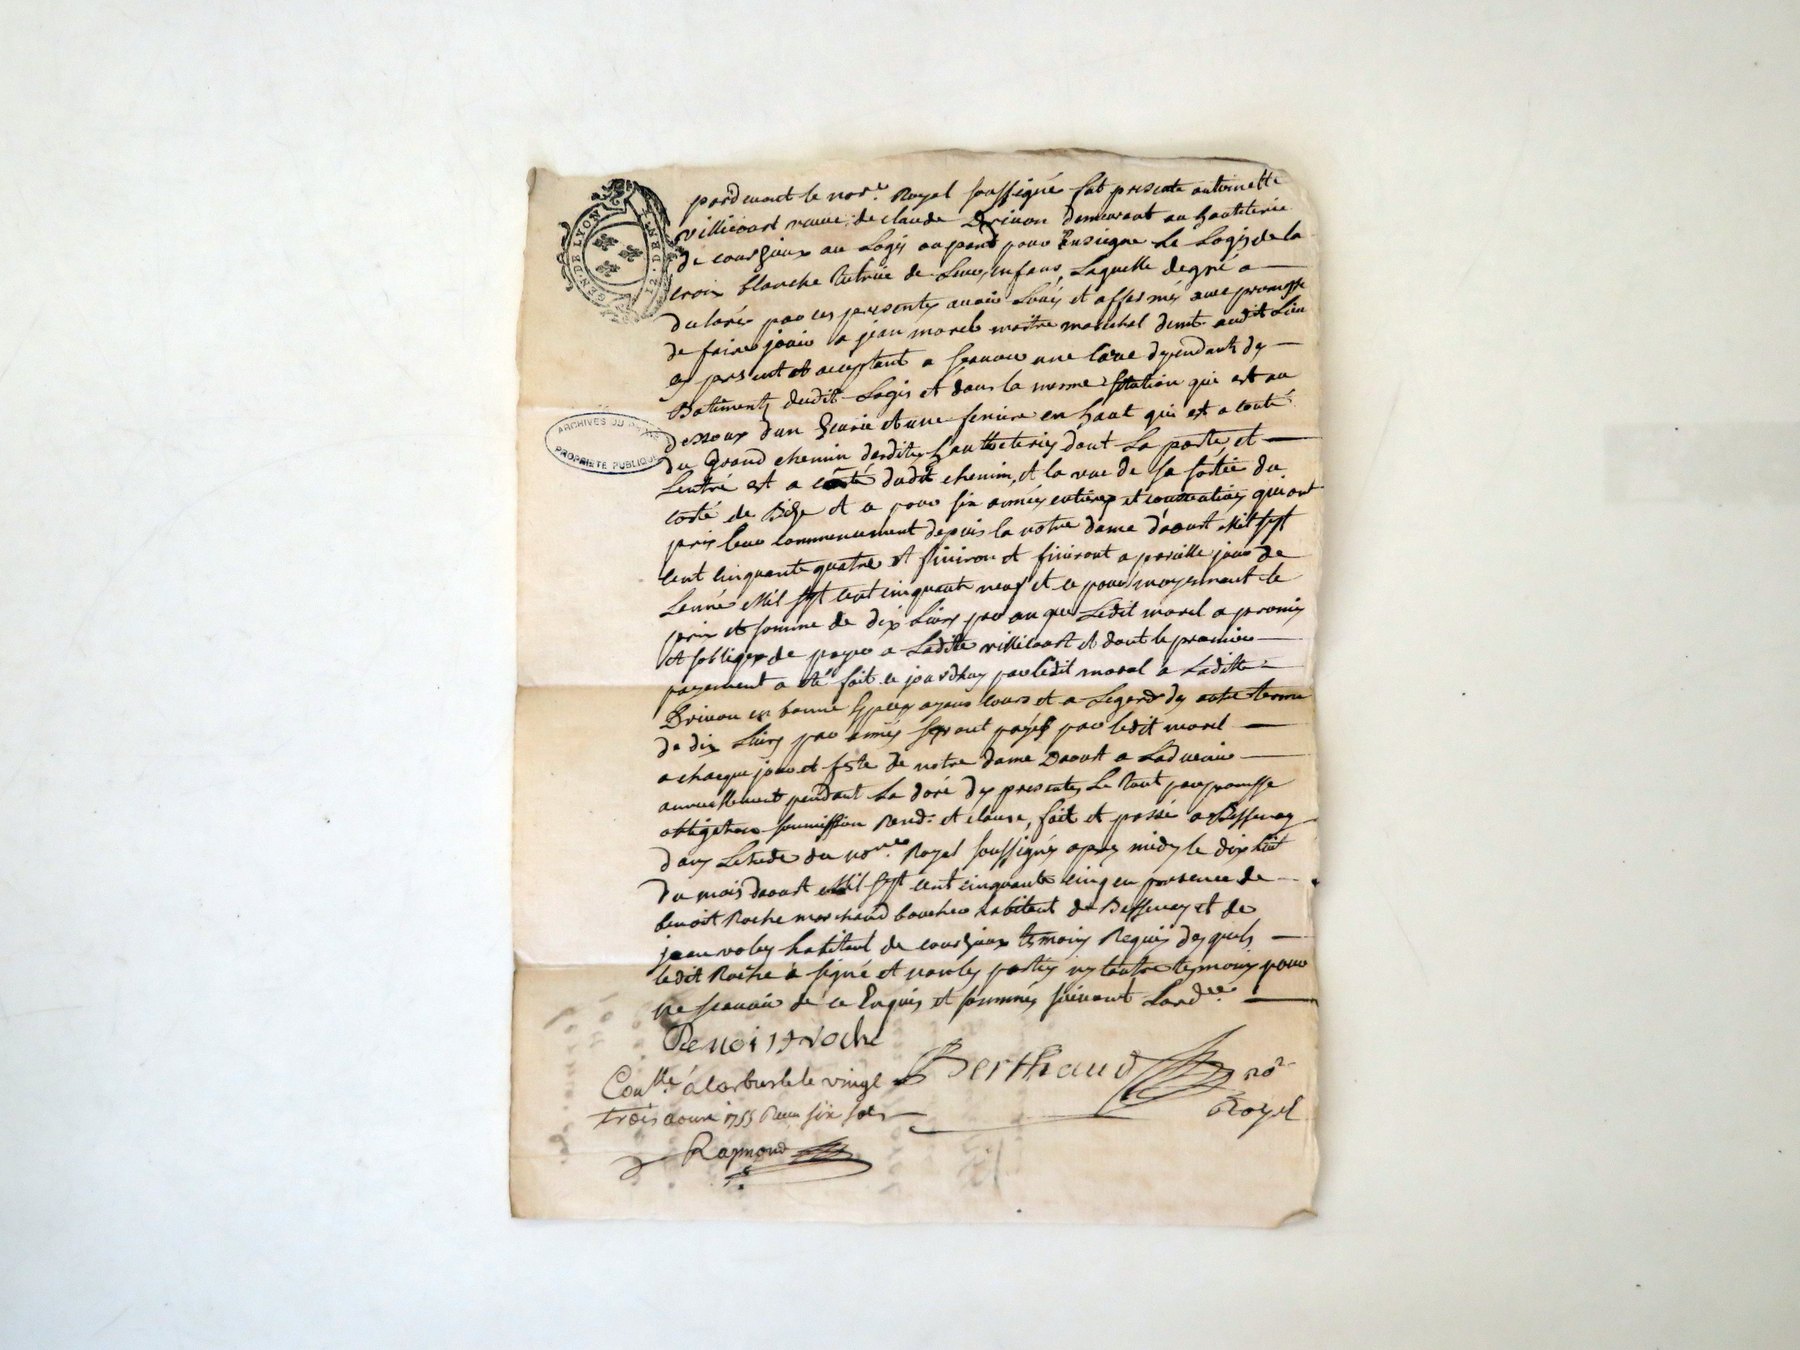 GEN. DE LYON
ARCHIVES DU RHÔNE
PROPRIÉTÉ PUBLIQUE
pardevant le nore. Royal soussigné fut presente antoinette
villicart veuve de claude Drivon demeurant au hauteterie
de courzieux au Logis ou pend pour Ensiegne Le Logis de la
croix blanche tutrice de Leurs enfans, Laquelle degré a
declaré par ces presentes avoir Loués et affermés avec promesse
de faire jouir a jean morel maitre marechal demt audit Lieu
cy present et acceptant a scavoir une Cave dependants des
Batiments dudit Logis et dans la mesme situation qui est au
dessoux dun Ecurie et une feniere en haut qui est a couté
du Grand chemin desdites hautteteries dont La porte et
Lentré est a couté dudit chemin, et la vue de sa sortie du
costé de Bize et ce pour six années entieres et consecutives qui ont
pris leur commencement depuis la notre dame d'aoust Mil sept
cent cinquante quatre et finiron et finiront a pareille jour de
Lennée Mil sept cent cinquante neuf et ce pour moyennant le
prix et somme de dix Livres par an que Ledit morel a promis
et sobliger de payer a Ladite villicart et dont le premier
payement a eté fait ce jourdhuy par Ledit morel a Laditte
Drivon en bonne Especes ayans cours et a Legard des autre terme
de dix Livres par années seront payés par ledit morel
a chaque jour et feste de notre dame Daoust a Ladvenir
annuellement pendant La doré des presentes Le tout par promesse
obligation soumission Renon. et clause, fait et passé a Bessenay
dans Letude du nore. Royal soussignés apres midy le dix huit
du mois daoust Mil sept cent cinquante cinq en presence de
benoit Roche marchand boucher habitant de Bessenay et de
jean voley habitant de courzieux temoins Requis desquels
ledit Roche a signé et non les parties ny lautre temoins pour
ne scavoir de ce Enquis et sommés suivant Lordce.
Benoist Roche
Conllé. à larbresle le vingt
trois aout 1755 Reçu six sols
Berthaud nore
Royal
Raymond